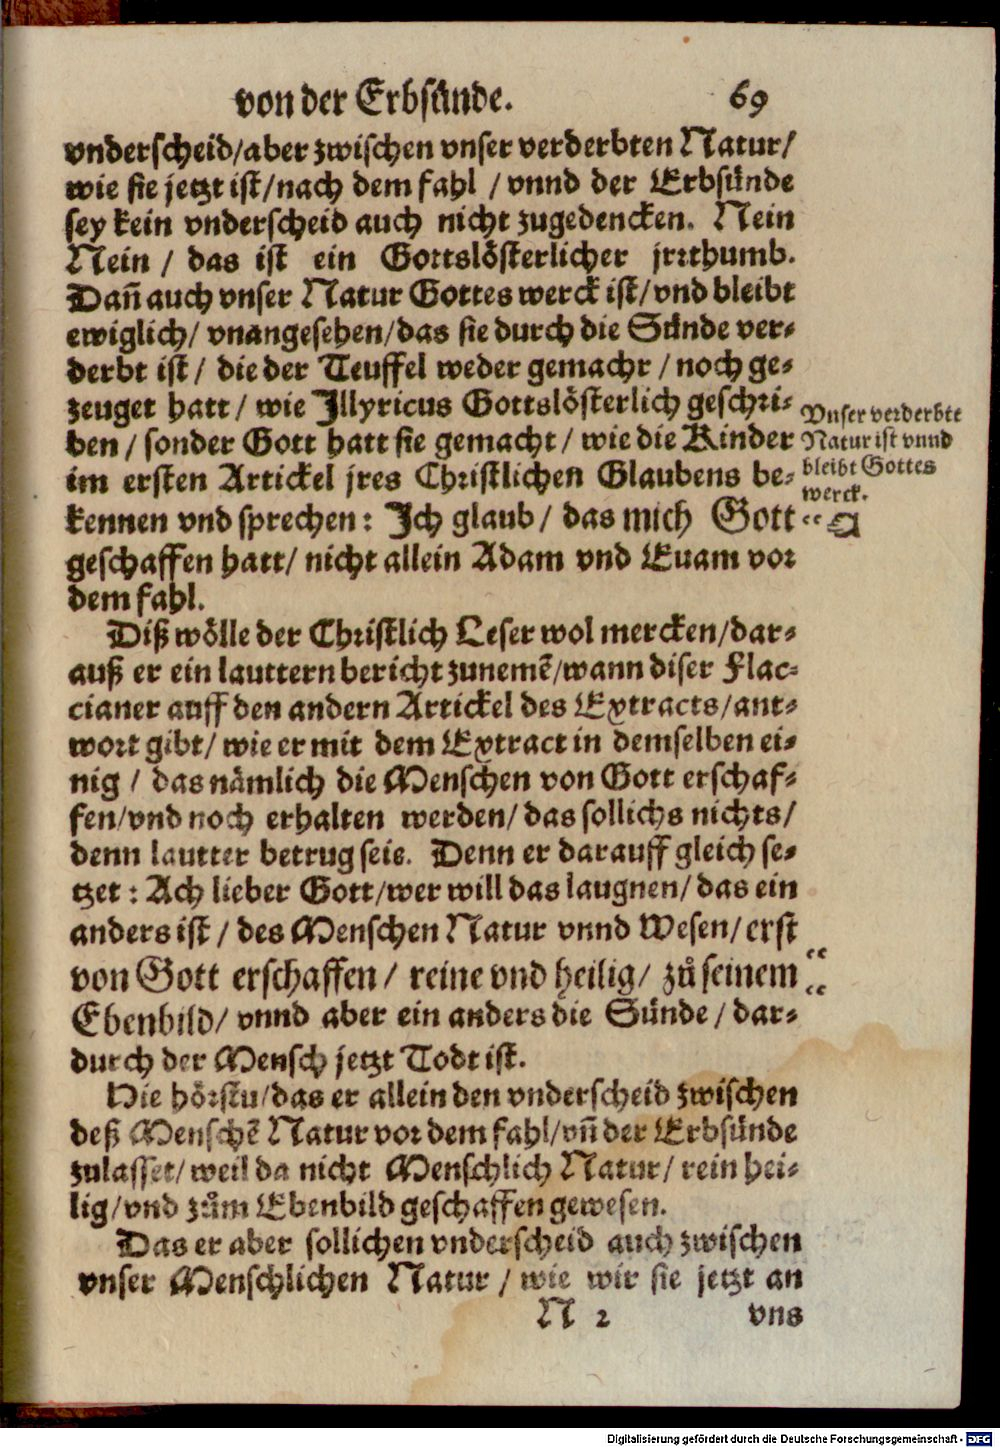 von der Erbsünde. 69
vnderscheid/aber zwischen vnser verderbten Natur/
wie sie jetzt ist/nach dem fahl / vnnd der Erbsünde
sey kein vnderscheid auch nicht zugedencken. Nein
Nein / das ist ein Gottslösterlicher jrrthumb.
Dañ auch vnser Natur Gottes werck ist/vnd bleibt
ewiglich/ vnangesehen/das sie durch die Sünde ver-
derbt ist/ die der Teuffel weder gemachr / noch ge-
zeuget hatt/ wie Illyricus Gottslösterlich geschri-
ben / sonder Gott hatt sie gemacht/ wie die Kinder
im ersten Artickel jres Christlichen Glaubens be-
kennen vnd sprechen: Ich glaub/ das mich Gott
geschaffen hatt/ nicht allein Adam vnd Euam vor
dem fahl.
Vnser verderbte
Natur ist vnnd
bleibt Gottes
werck.
Diß wölle der Christlich Leser wol mercken/dar-
auß er ein lauttern bericht zunemẽ/wann diser Flac-
cianer auff den andern Artickel des Extracts/ant-
wort gibt/ wie er mit dem Extract in demselben ei-
nig / das nämlich die Menschen von Gott erschaf-
fen/vnd noch erhalten werden/das sollichs nichts/
denn lautter betrug seie. Denn er darauff gleich se-
tzet: Ach lieber Gott/wer will das laugnen/das ein
anders ist / des Menschen Natur vnnd Wesen/erst
von Gott erschaffen/ reine vnd heilig/ zů seinem
Ebenbild/ vnnd aber ein anders die Sünde/ dar-
durch der Mensch jetzt Todt ist.
Hie hörstu/das er allein den vnderscheid zwischen
deß Menschẽ Natur vor dem fahl/vñ der Erbsünde
zulasset/weil da nicht Menschlich Natur/ rein hei-
lig/vnd zům Ebenbild geschaffen gewesen.
Das er aber sollichen vnderscheid auch zwischen
vnser Menschlichen Natur / wie wir sie jetzt an
N 2 vns
Digitalisierung gefördert durch die Deutsche Forschungsgemeinschaft - DFG